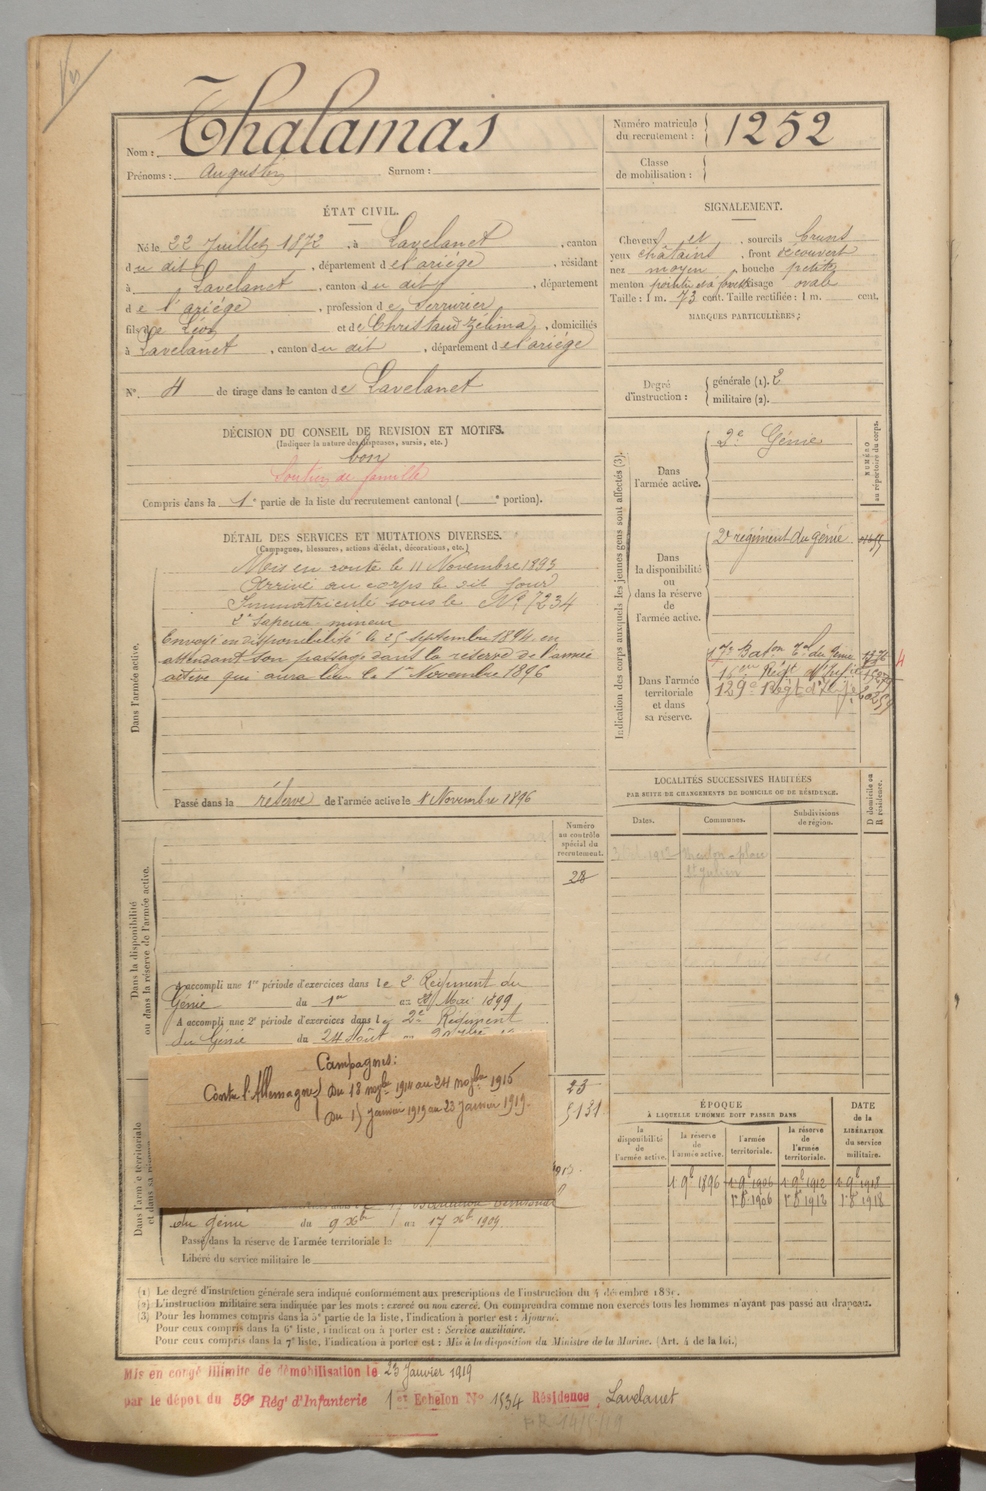 Nom : Thalamas
Prénoms : Augustin Surnom :
Numéro matricule du recrutement : 1252
Classe de mobilisation :
ÉTAT CIVIL.
Né le 22 Juillet 1872, à Lavelanet, canton
du dit, département de l'ariége, résidant
à Lavelanet, canton du dit, département
de l'ariége, profession de Serrurier
fils de Léon et de Christaud Zélima, domiciliés
à Lavelanet, canton du dit, département de l'ariége
N° 4 de tirage dans le canton de Lavelanet
SIGNALEMENT.
Cheveux et, sourcils bruns
yeux châtains, front découvert
nez moyen, bouche petite
menton pointu et à fossette visage ovale
Taille : 1 m. 73 cent. Taille rectifiée : 1 m. cent.
MARQUES PARTICULIÈRES :
Degré d'instruction : générale (1). 2
militaire (2).
DÉCISION DU CONSEIL DE REVISION ET MOTIFS.
(Indiquer la nature des dispenses, sursis, etc.)
bon
Soutien de famille
Compris dans la 1e partie de la liste du recrutement cantonal ( e portion).
DÉTAIL DES SERVICES ET MUTATIONS DIVERSES.
(Campagnes, blessures, actions d'éclat, décorations, etc.)
Dans l'armée active.
Mis en route le 11 Novembre 1893
Arrivé au corps le dit jour
Immatriculé sous le N° 7234
2e Sapeur mineur
Envoyé en disponibilité le 25 septembre 1894 en
attendant son passage dans la réserve de l'armée
active qui aura lieu le 1er Novembre 1896
Passé dans la réserve de l'armée active le 1 Novembre 1896
Indication des corps auxquels les jeunes gens sont affectés (3).
NUMÉRO au répertoire du corps.
Dans l'armée active.
2e Génie
Dans la disponibilité ou dans la réserve de l'armée active.
2e régiment du génie
Dans l'armée territoriale et dans sa réserve.
17e Baton Tal du Génie
129e Régt d'Inf.ie
LOCALITÉS SUCCESSIVES HABITÉES
PAR SUITE DE CHANGEMENTS DE DOMICILE OU DE RÉSIDENCE.
D domicile ou R résidence.
Dates. Communes. Subdivisions de région.
1912 place
St Julien
Dans la disponibilité ou dans la réserve de l'armée active.
Numéro au contrôle spécial du recrutement.
28
A accompli une 1re période d'exercices dans le 2e Régiment du
Génie du 1er au 28 Mai 1899
A accompli une 2e période d'exercices dans le 2e Régiment
du Génie du 24 Août au
Campagnes :
Contre l'Allemagne Du 18 novbre 1914 au 24 novbre 1915
Du 15 Janvier 1919 au 23 Janvier 1919.
23
5131
du génie du 9 Xbre au 17 Xbre 1909
Passé dans la réserve de l'armée territoriale le
Libéré du service militaire le
ÉPOQUE
À LAQUELLE L'HOMME DOIT PASSER DANS
DATE de la LIBÉRATION du service militaire.
la disponibilité de l'armée active.
la réserve de l'armée active.
l'armée territoriale.
la réserve de l'armée territoriale.
1 9e 1896 1 9e 1906 1 9e 1912 1 9e 1918
1er 8e 1906 1er 8e 1912 1er 8e 1918
(1) Le degré d'instruction générale sera indiqué conformément aux prescriptions de l'instruction du 4 décembre 1889.
(2) L'instruction militaire sera indiquée par les mots : exercé ou non exercé. On comprendra comme non exercés tous les hommes n'ayant pas passé au drapeau.
(3) Pour les hommes compris dans la 5e partie de la liste, l'indication à porter est : Ajourné.
Pour ceux compris dans la 6e liste, l'indication à porter est : Service auxiliaire.
Pour ceux compris dans la 7e liste, l'indication à porter est : Mis à la disposition du Ministre de la Marine. (Art. 4 de la loi.)
Mis en congé illimité de démobilisation le 23 Janvier 1919
par le dépôt du 59e Régt d'Infanterie 1er Echelon N° 1534 Résidence Lavelanet